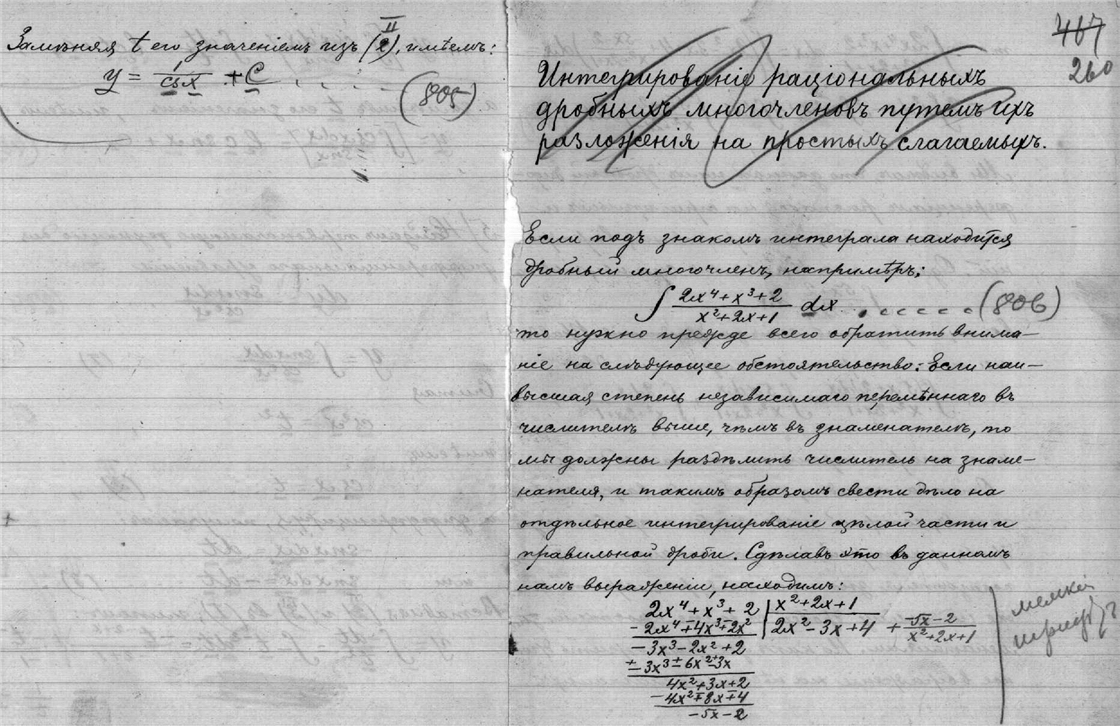 Замѣняя t его значеніемъ изъ (2), имѣемъ:
II
y = 1/csx + C . . . .
(805)
467
260
Интегрированіе раціональныхъ
дробныхъ многочленовъ путемъ ихъ
разложенія на простыхъ слагаемыхъ.
Если подъ знакомъ интеграла находится
дробный многочленъ, напримѣръ:
∫ (2x⁴+x³+2)/(x²+2x+1) dx . . . . . . . (806)
то нужно прежде всего обратить внима-
ніе на слѣдующее обстоятельство: Если наи-
высшая степень независимаго перемѣннаго въ
числителѣ выше, чѣмъ въ знаменателѣ, то
мы должны раздѣлить числитель на знаме-
нателя, и такимъ образомъ свести дѣло на
отдѣльное интегрированіе цѣлой части и
правильной дроби. Сдѣлавъ это въ данномъ
намъ выраженіи, находимъ:
2x⁴+x³+2 | x²+2x+1
- 2x⁴+4x³+2x² | 2x²-3x+4 + (-5x-2)/(x²+2x+1)
-3x³-2x²+2
±-3x³±-6x²±-3x
4x²+3x+2
-4x²∓8x∓4
-5x-2
мелкій
шрифтъ